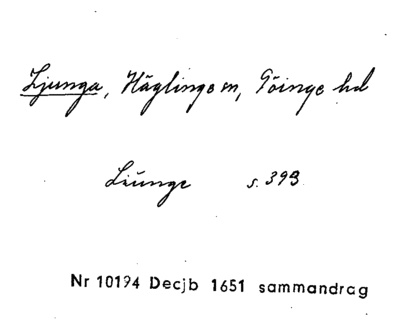 Ljunga, Häglinge sn, Göinge hd
Liunge s. 393
Nr 10194 Decjb 1651 sammandrag